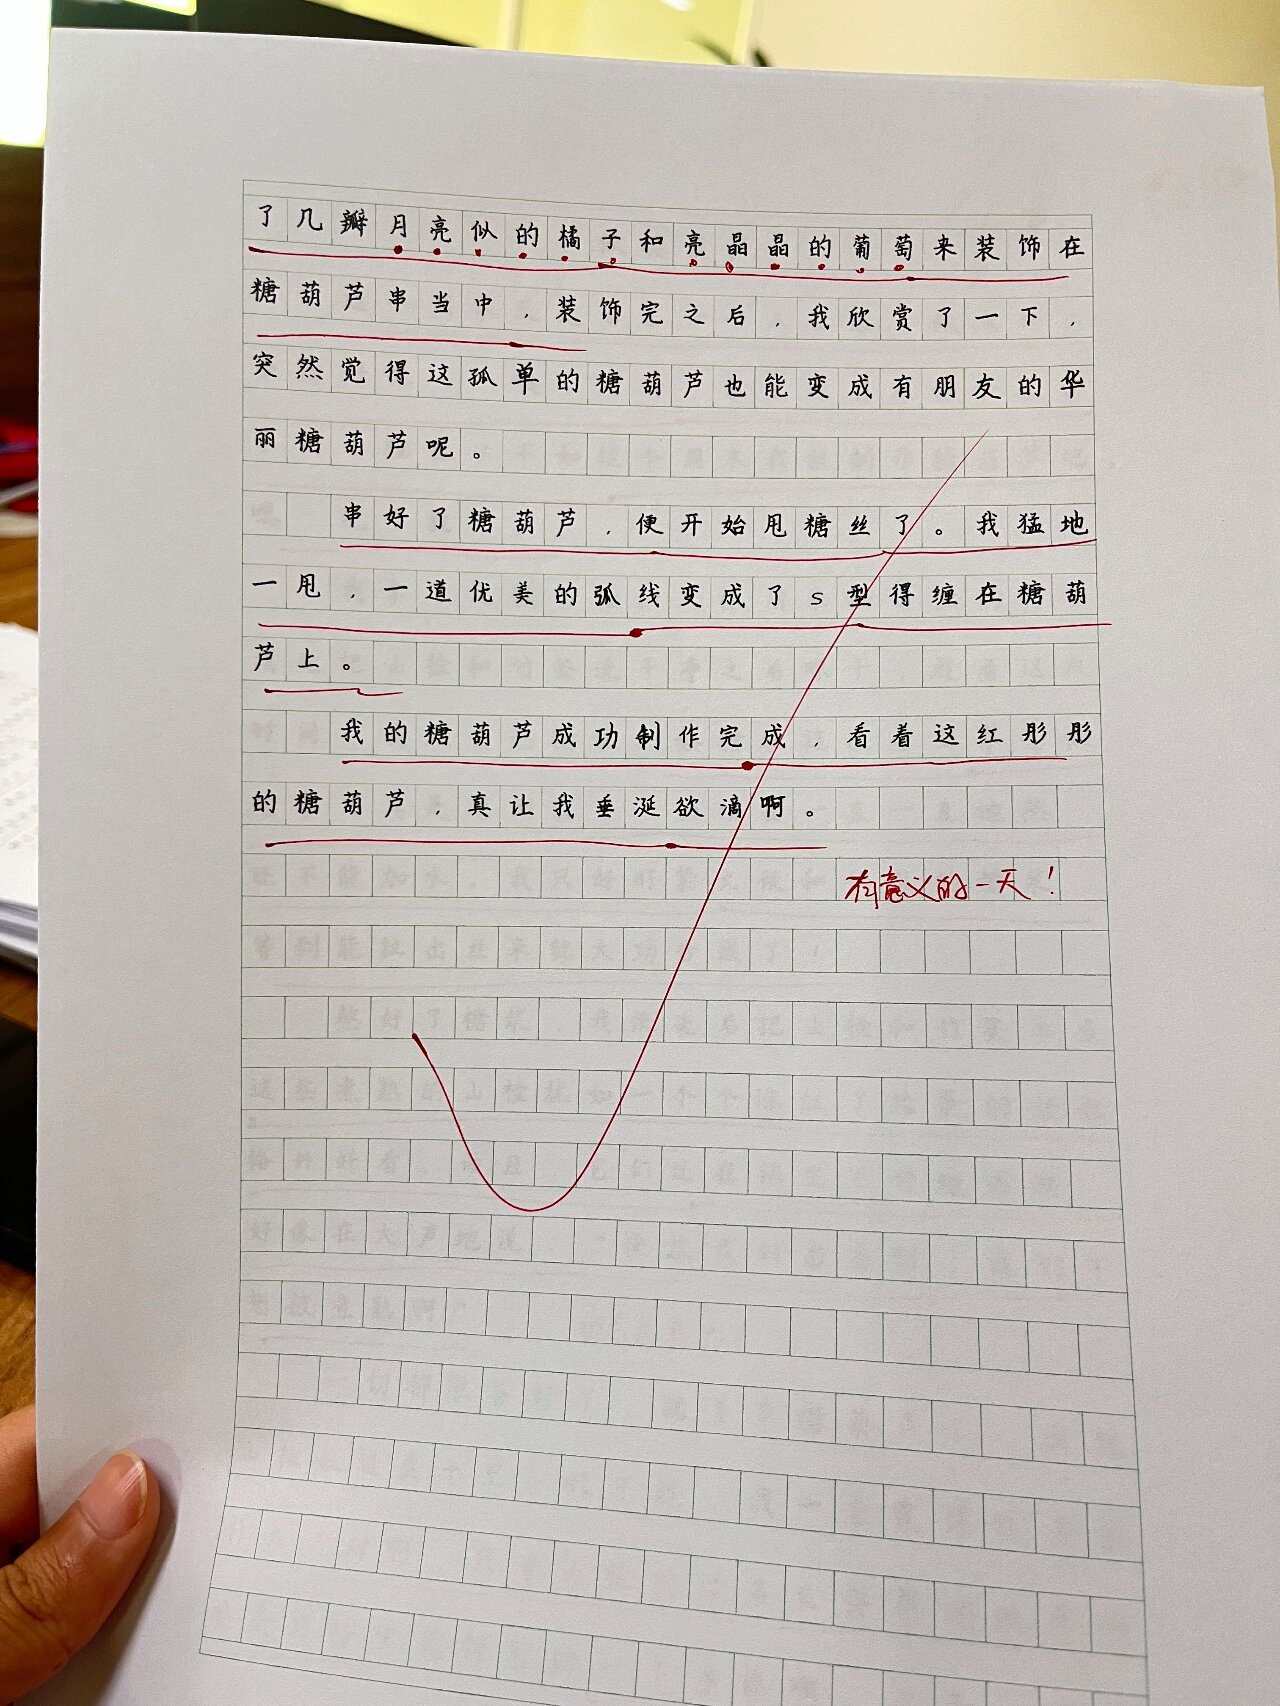 了几瓣月亮似的橘子和亮晶晶的葡萄来装饰在
糖葫芦串当中，装饰完之后，我欣赏了一下，
突然觉得这孤单的糖葫芦也能变成有朋友的华
丽糖葫芦呢。
串好了糖葫芦，便开始甩糖丝了。我猛地
一甩，一道优美的弧线变成了s型得缠在糖葫
芦上。
我的糖葫芦成功制作完成，看着这红彤彤
的糖葫芦，真让我垂涎欲滴啊。
有意义的一天！